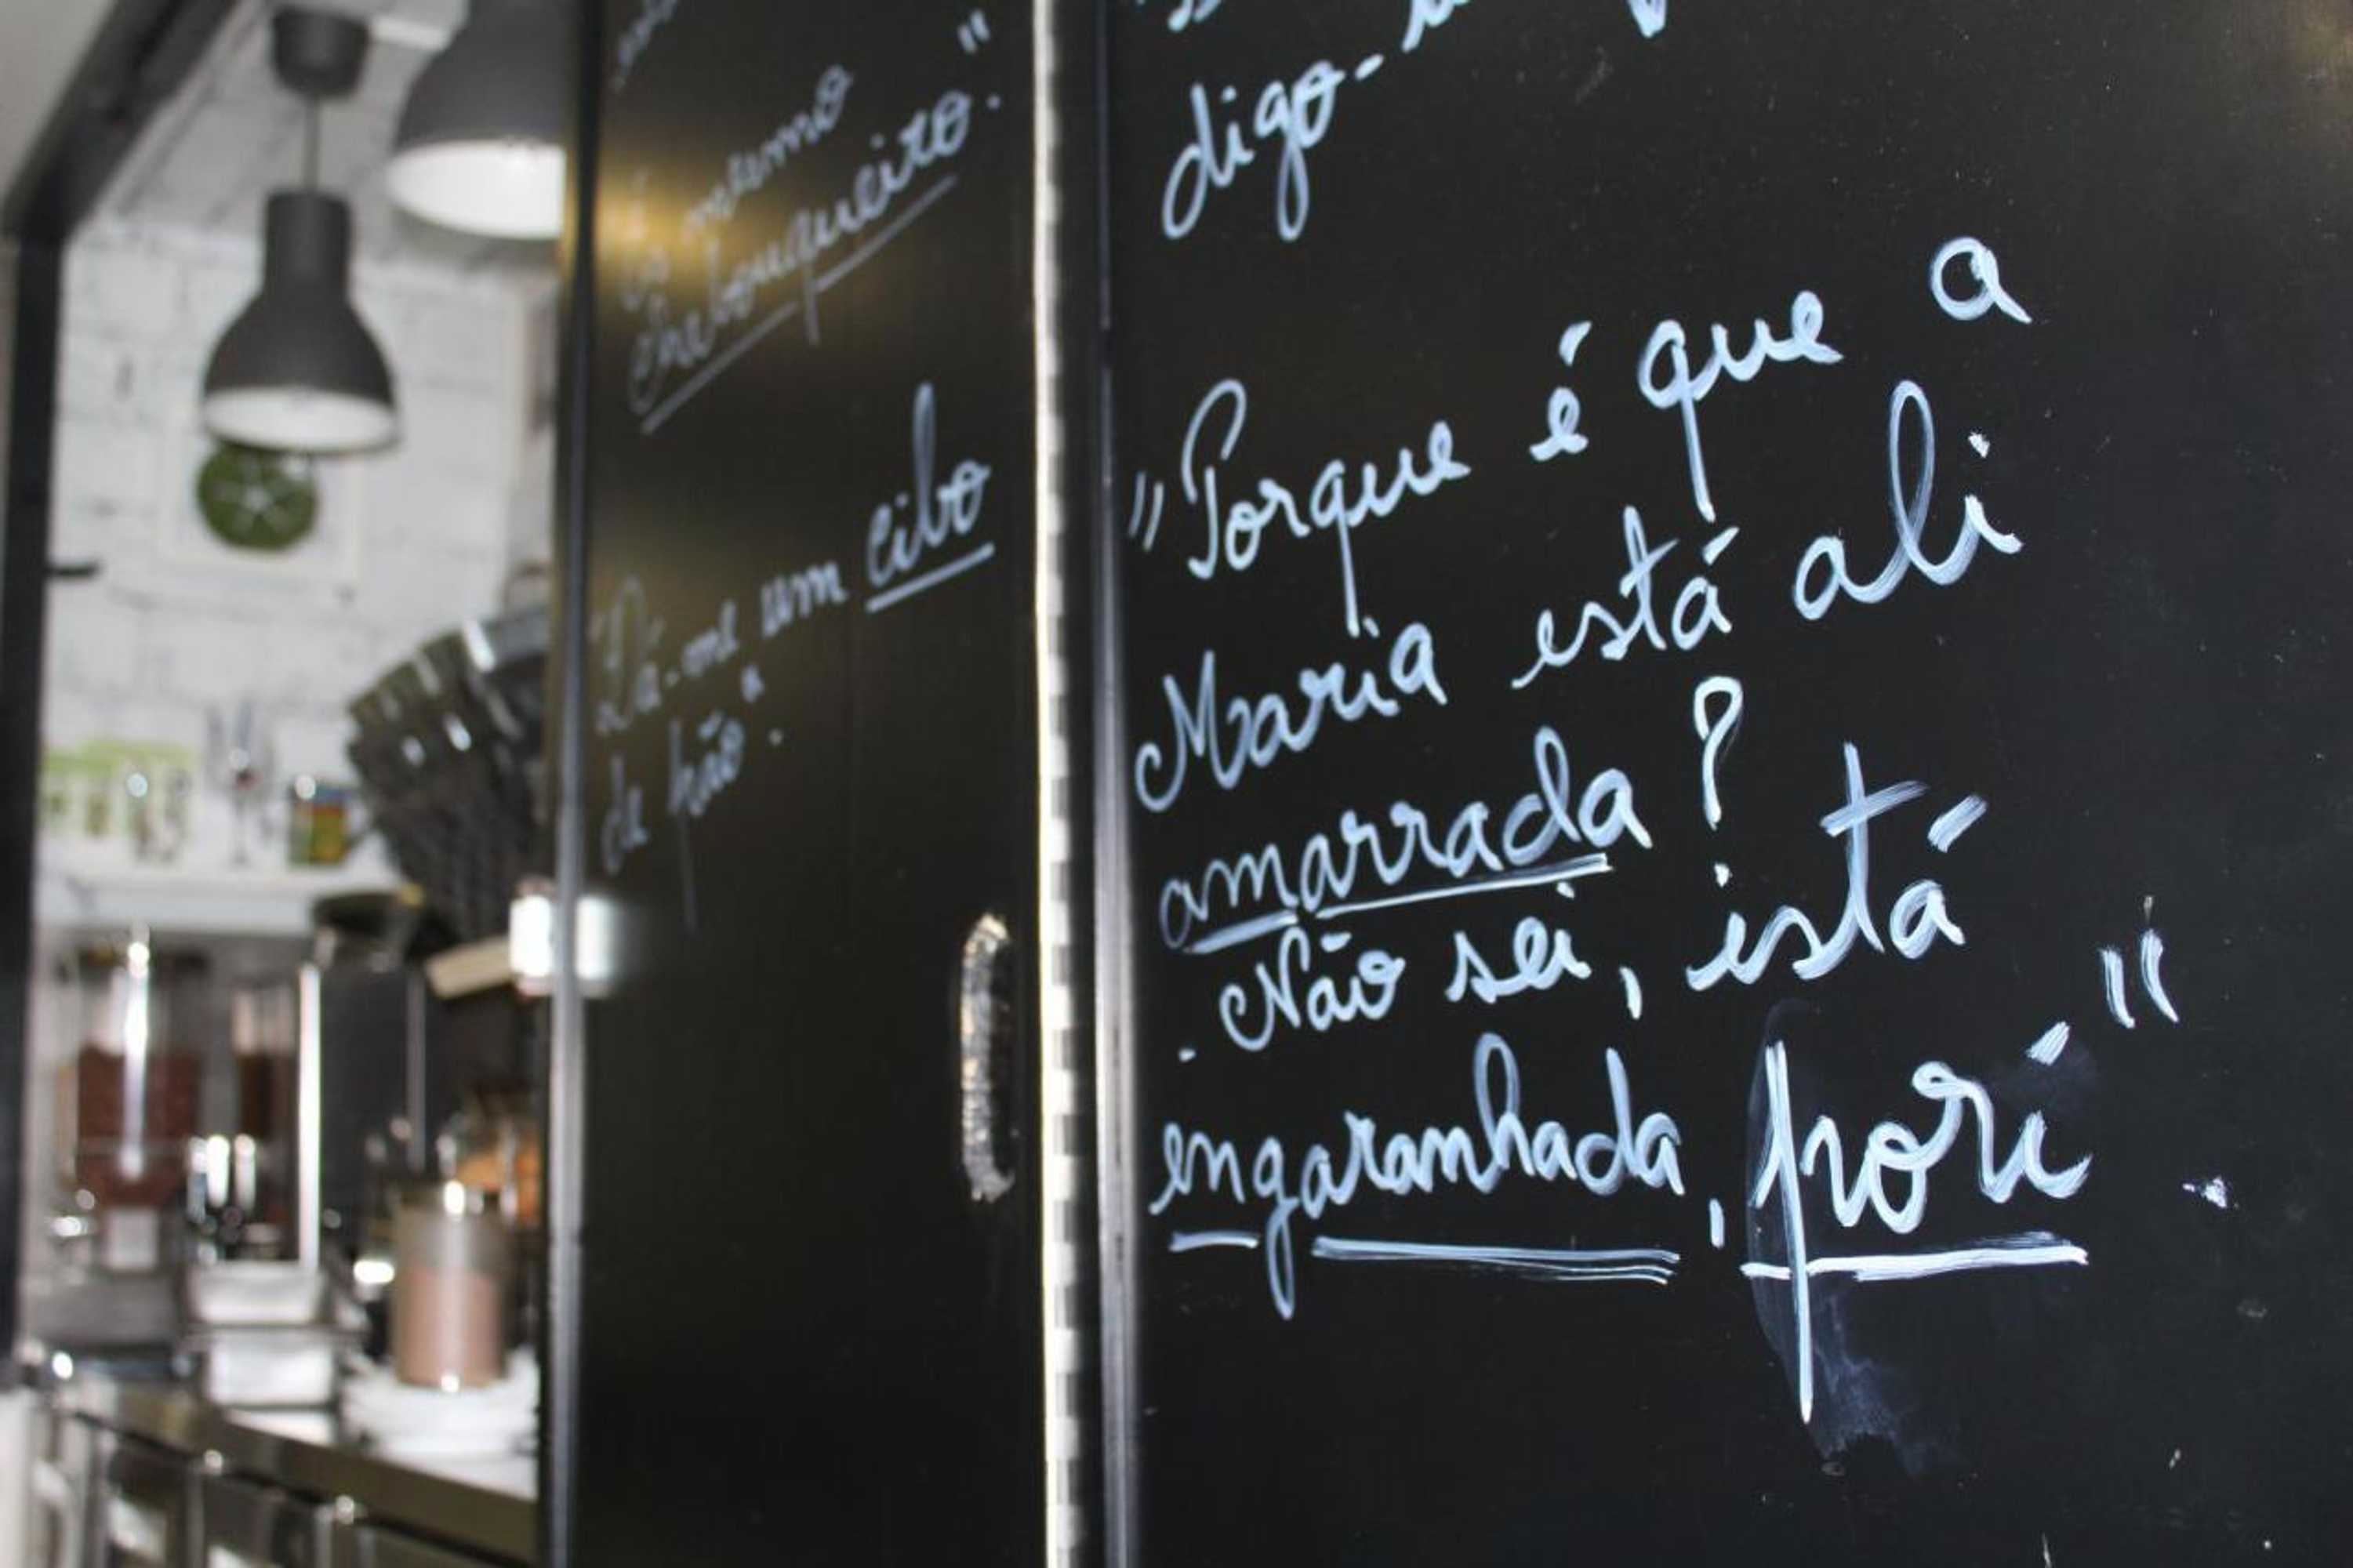 mesmo
enchouqueiro."
"Dá-me um cibo
de pão".
digo-
"Porque é que a
Maria está ali
amarrada?
- Não sei, está
engaranhada, porí"